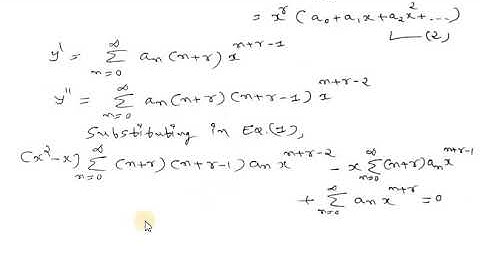 = x^r (a₀ + a₁x + a₂x² + ...)
(2)
y' = ∑_{n=0}^{∞} a_n (n+r) x^{n+r-1}
y'' = ∑_{n=0}^{∞} a_n (n+r) (n+r-1) x^{n+r-2}
Substituting in Eq.(1),
(x²-x) ∑_{n=0}^{∞} (n+r) (n+r-1) a_n x^{n+r-2} - x ∑_{n=0}^{∞} (n+r) a_n x^{n+r-1}
+ ∑_{n=0}^{∞} a_n x^{n+r} = 0